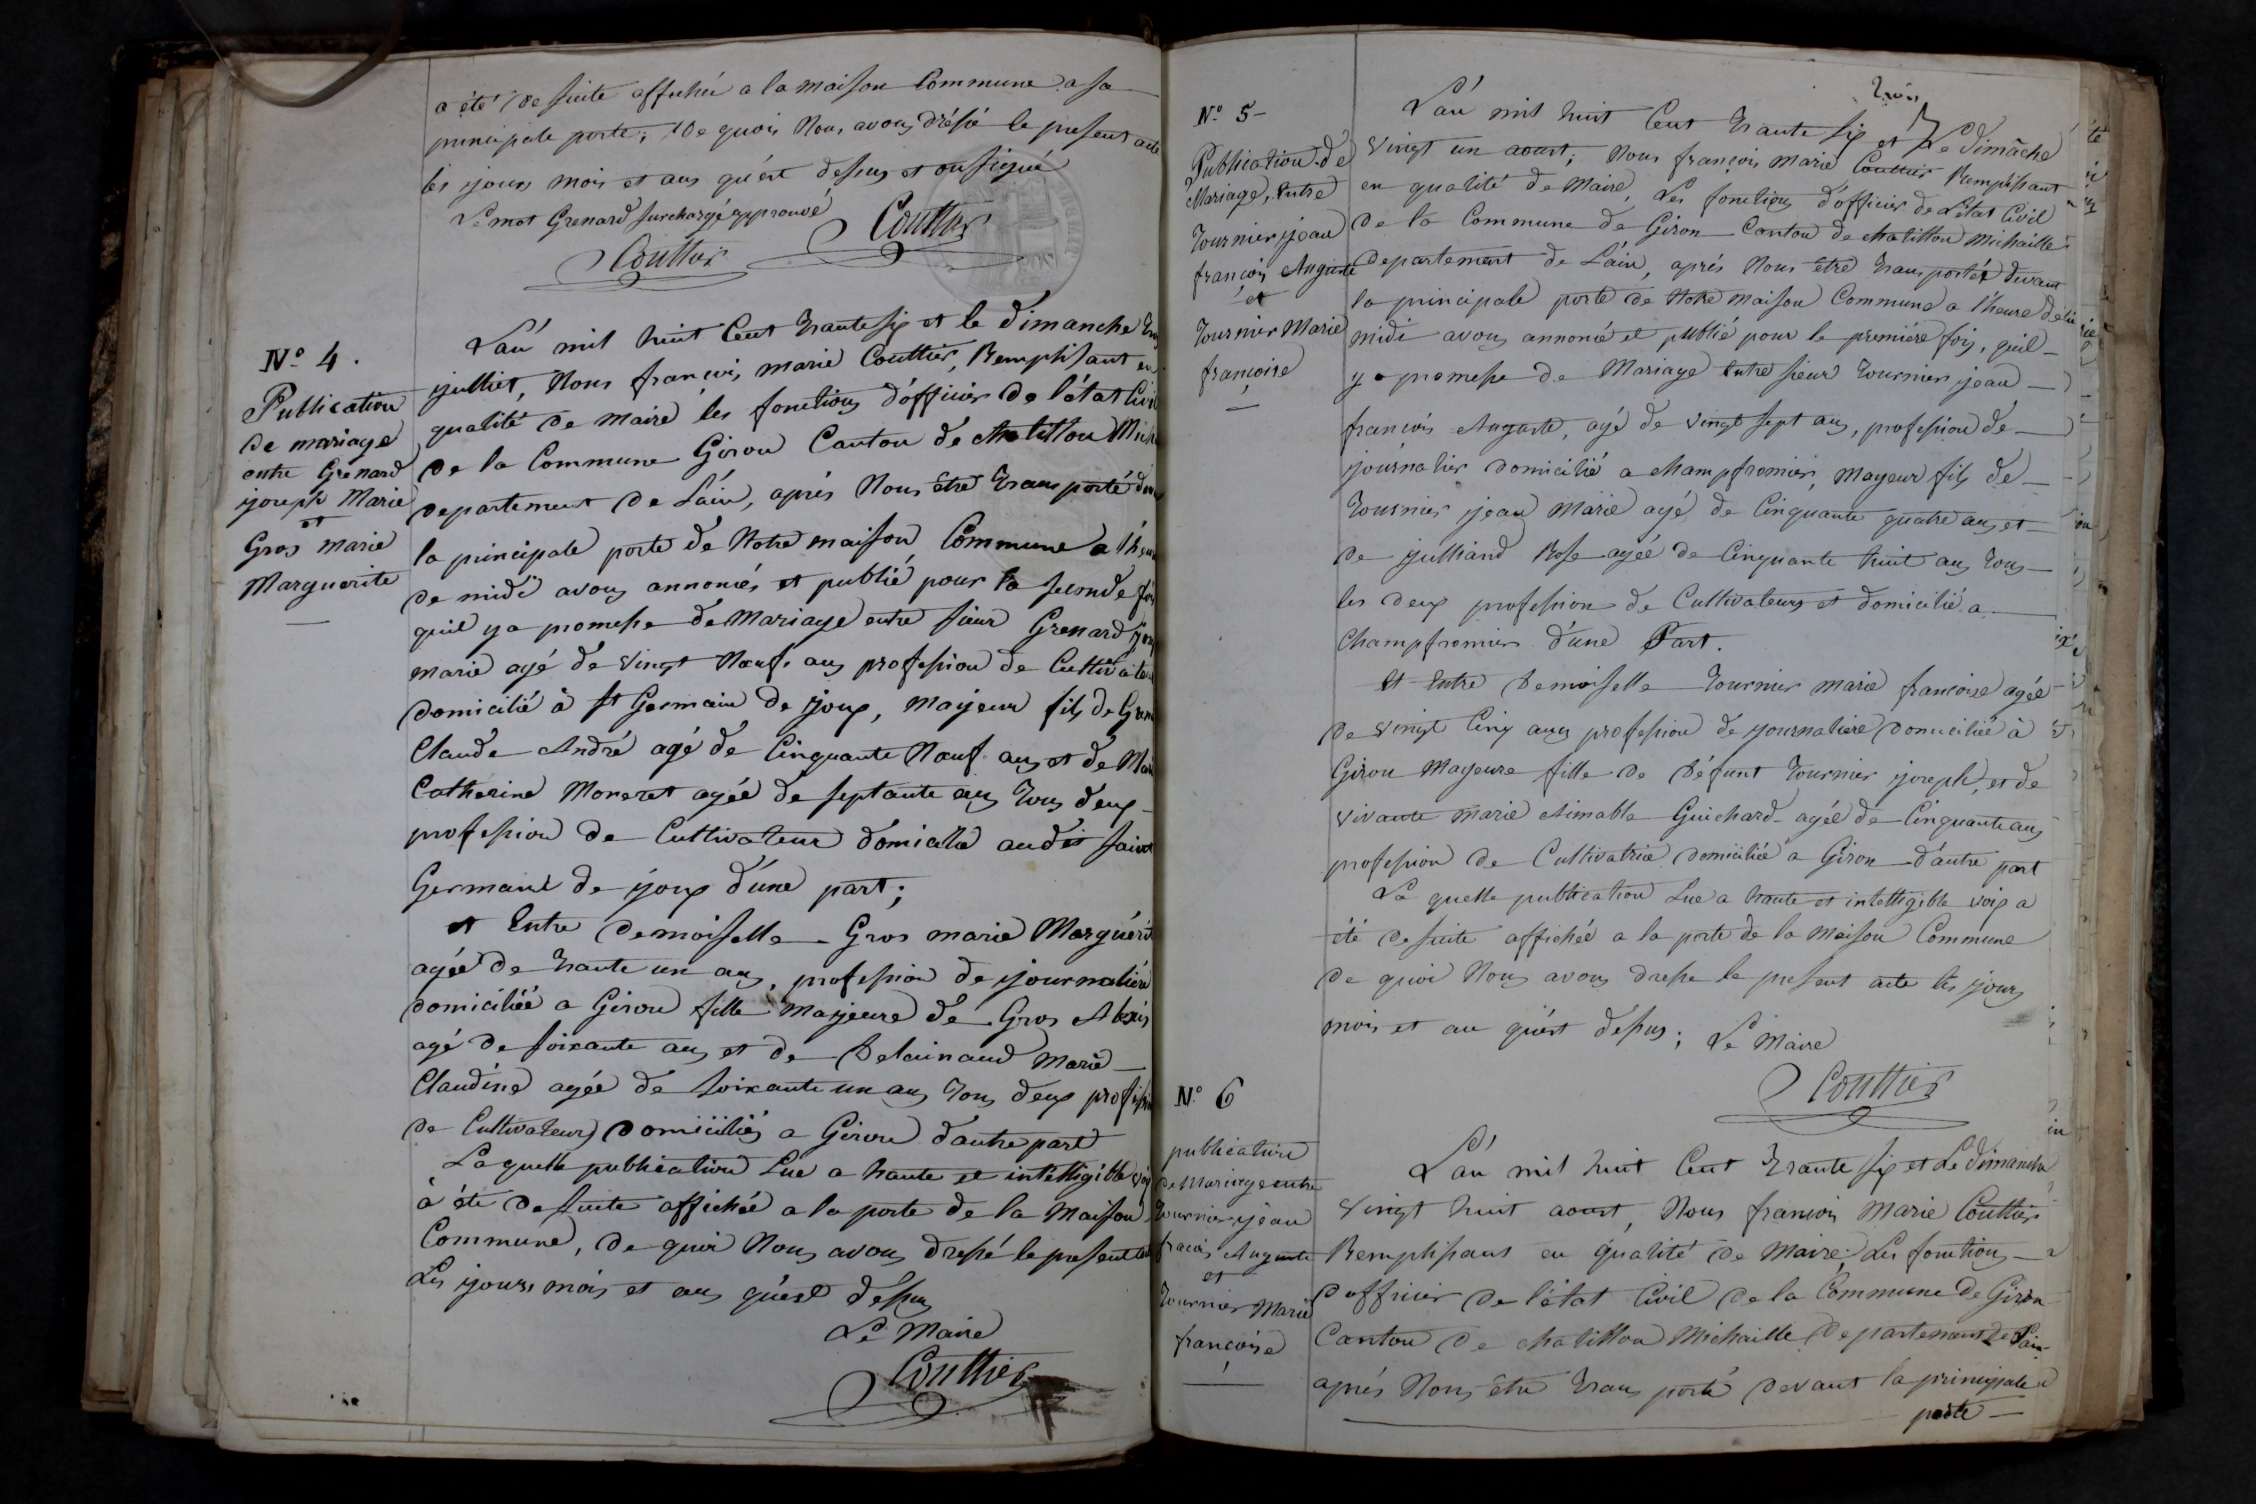 a été de suite affichée a la maison Commune a sa
principale porte; De quoi Nous avons dréssé le present acte
les yours mois et ans qu'ést dessus et onsigné
Le mot Grenard surchargé approuvé
Couttier
Couttier
N° 4.
Publication
de mariage
entre Grenard
yoseph Marie
et
Gros marie
Marguerite
L'án mil huit Cent trante six et le dimanche
yulliet, Nous françois marie Couttier, Remplissant en
qualité de maire les fonctions d'officier de l'état Civil
de la Commune Giron Canton de chatillon Mich
departement de L'áin, aprés Nous être transporté
la principale porte de Notre maison Commune a l'heure
de midi avons annoncés et publié pour la seconde fois
quil ya promesse de Mariage entre sieur Grenard
marie agé de vingt Nœuf ans profession de Cultivate
domicilié à St Germain de youx, mayeur fils de
Claude André agé de Cinquante Nœuf ans et de
Catherine Moneret agée de septante ans tous deux
profession de Cultivateur domicilié audit saint
Germain de youx d'une part;
et Entre demoiselle Gros marie Marguérit
agée de trante un ans, profession de yournaliere
domiciliée a Giron fille mayeure de Gros Alexis
agé de soixante ans et de Delainaud Marie
Claudine agée de soixante un ans tous deux profession
de Cultivateurs domiciliés a Giron d'autre part
Laquelle publication Lue a haute et intelligible voix
à éte de suite affichée a la porte de la Maison
Commune, de quoi Nous avons dressé le present
Les yours mois et ans qu'est dessus
Le Maire
Couttier
N° 5
Publication de
Mariage, Entre
Tournier jean
françois Auguste
et
Tournier Marie
françoise
L'án mil huit Cent trante six et Le dimâche
vingt un aoust; Nous françois Marie Couttier Remplissant
en qualité de Maire, Les fonctions d'officier de L'état Civil
de la Commune de Giron Canton de chatillon Michaille
departement de L'áin, aprés Nous être transporté devant
la principale porte de Notre maison Commune a l'heure de
midi avons annoncé et publié pour la premiére fois, quil
y a promesse de Mariage Entre sieur Tournier jean
françois Auguste, agé de vingt sept ans, profession de
journalier domicilié a champfromier, mayeur fils de
Tournier jean Marie agé de Cinquante quatre ans et
de julliand Rose agée de Cinquante huit ans tous
les deux profession de Cultivateurs et domicilié a
Champfromier d'une Part.
Et Entre Demoiselle Tournier marie françoise agée
de vingt Cinq ans profession de yournaliere domiciliée à
Giron Mayeure fille de Défunt Tournier joseph, et de
vivante marie Aimable Guichard agée de Cinquante ans
profession de Cultivatrice domiciliée a Giron d'autre part
La quelle publication Lue a haute et intelligible voix a
été de suite affichée a la porte de la Maison Commune
de quoi Nous avons dresse le present acte les yours
mois et an qu'ést dessus; Le Maire
Couttier
N° 6
publication
de Mariage entre
Tournier jean
françois Auguste
et
Tournier Marie
françoise
L'án mil huit Cent trante six et Le dimanche
vingt huit aoust, Nous françois Marie Couttier
Remplissans en qualité de Maire, Les fonctions
d'officier de l'état Civil de la Commune de Giron
Canton de chatillon Michaille departement de l'ain
aprés Nous être transporté devant la principale
porte